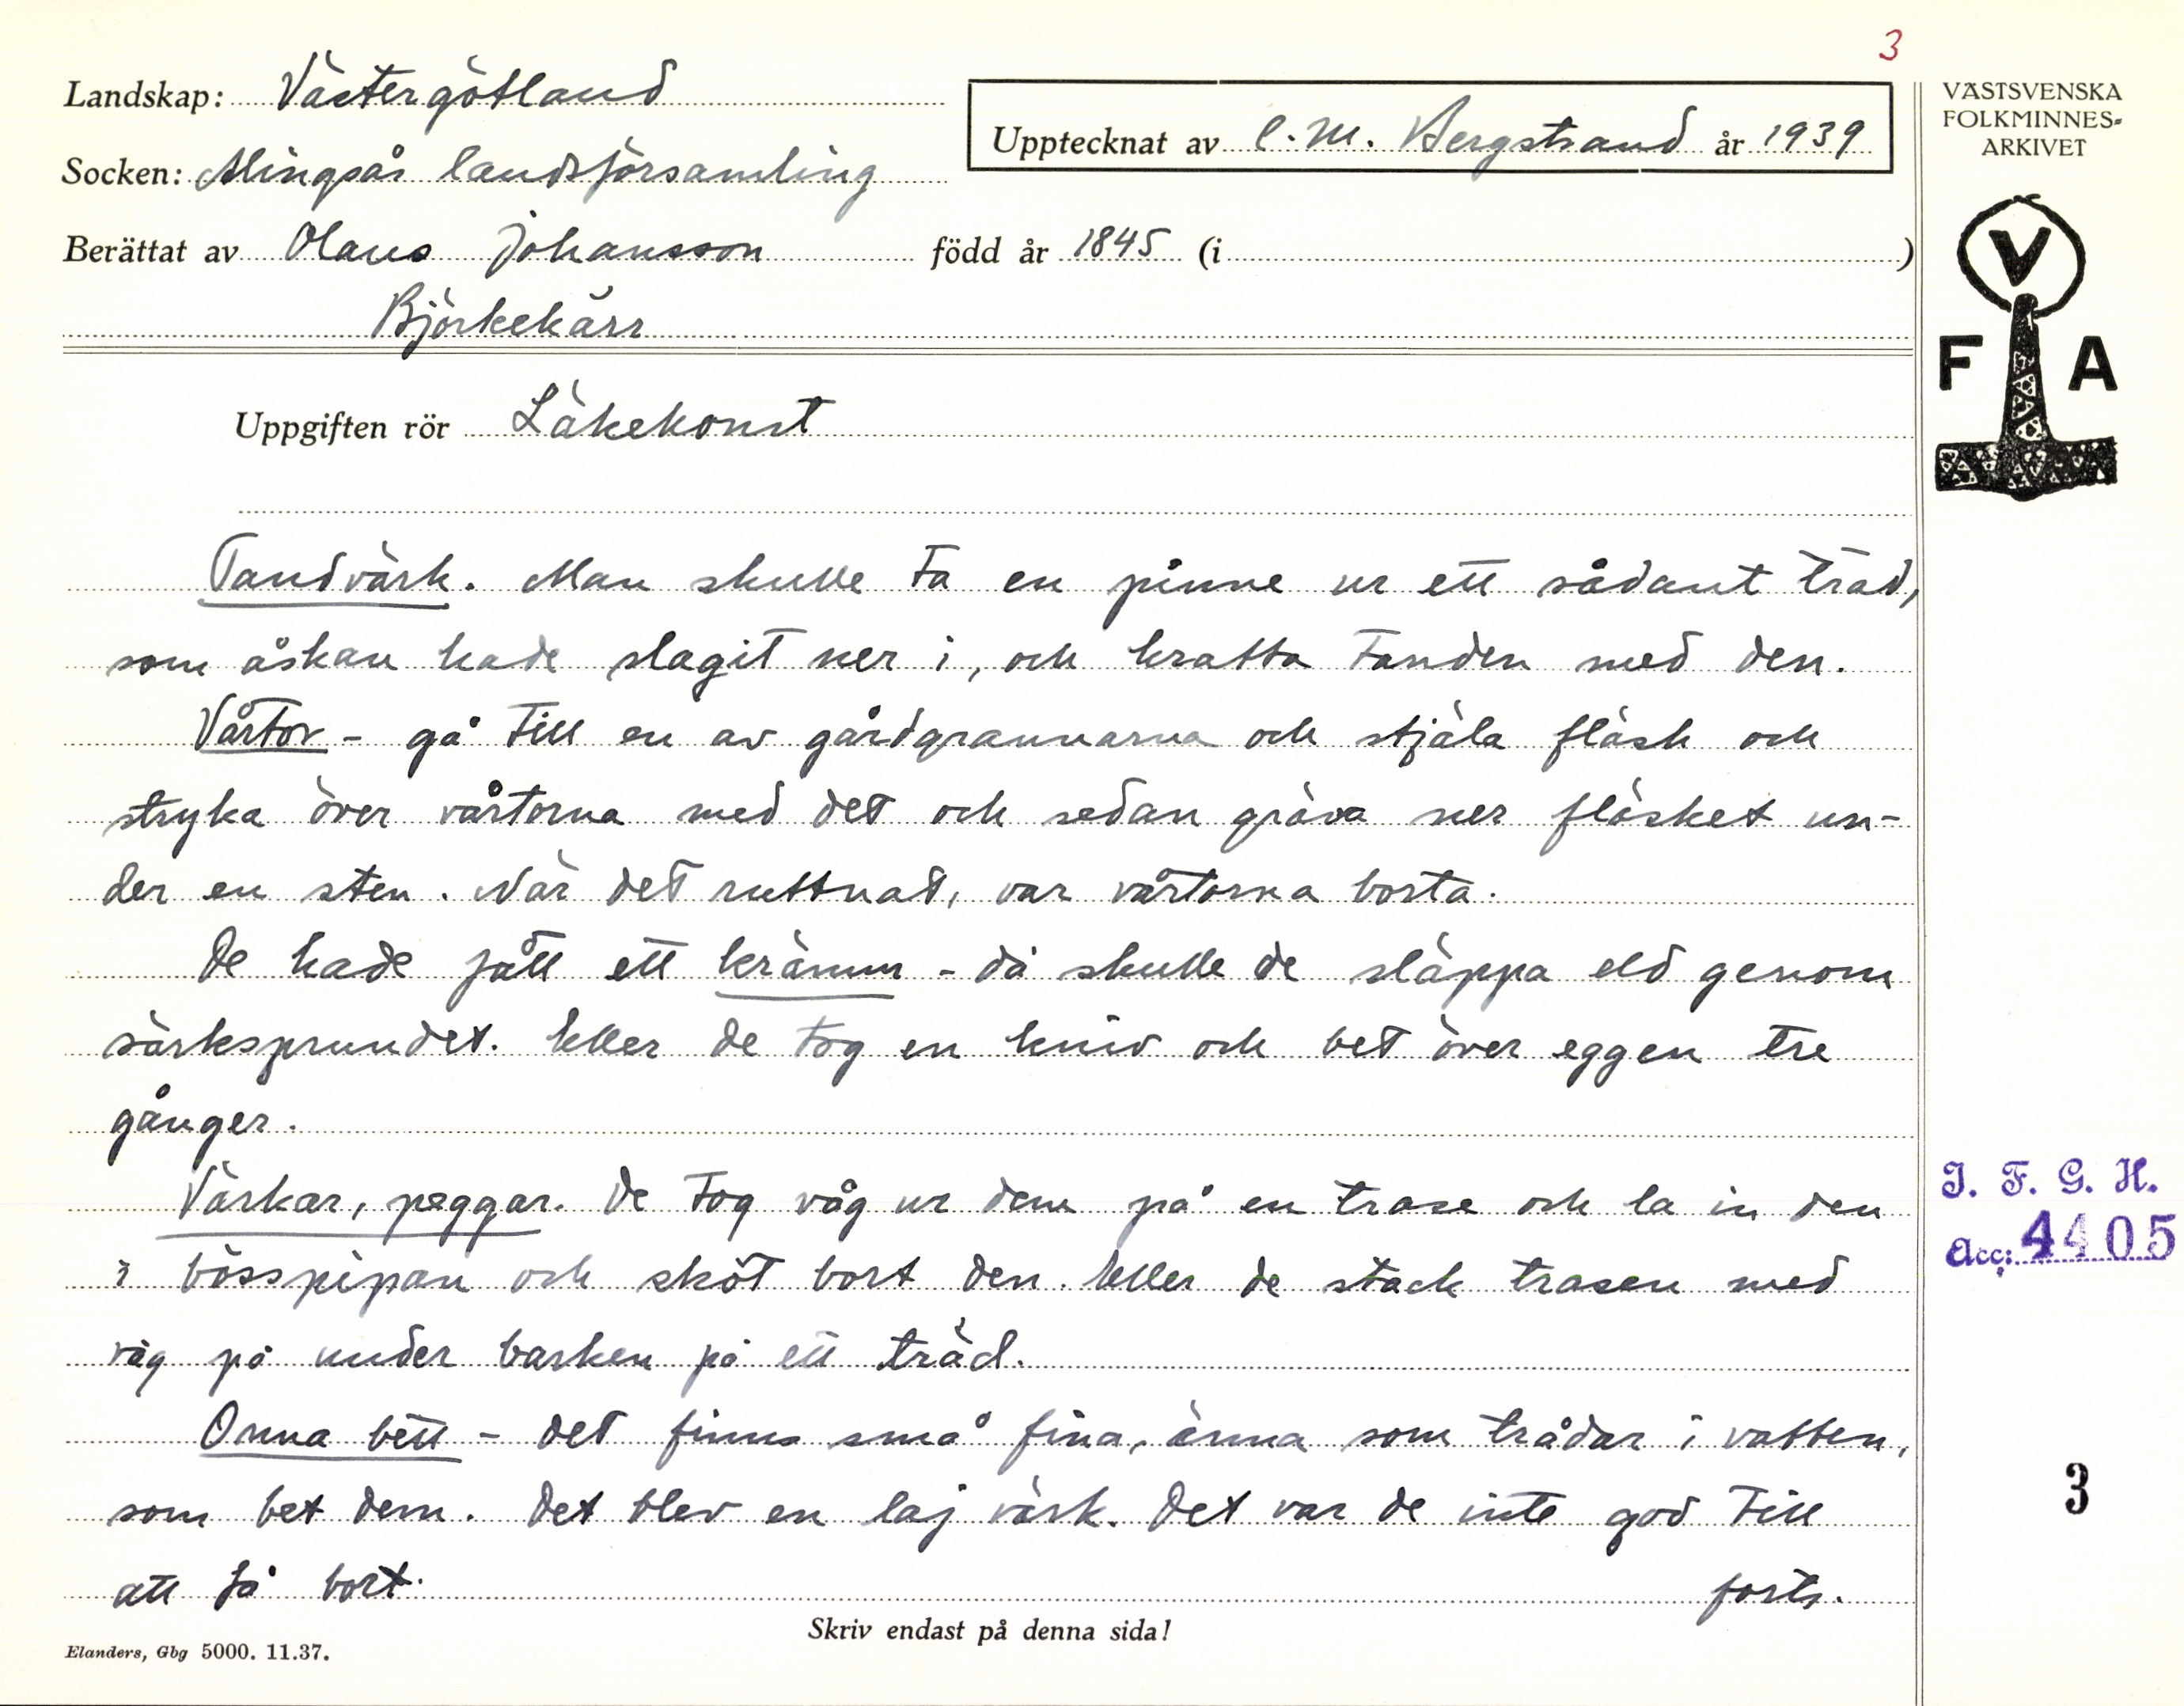 3
Landskap: Västergötland
Upptecknat av C. M. Bergstrand år 1939
Socken: Alingsås landsförsamling
Berättat av Olaus Johansson född år 1845 (i )
Björkekärr
VÄSTSVENSKA
FOLKMINNES-
ARKIVET
V
F A
Uppgiften rör Läkekonst
Tandvärk. Man skulle ta en pinne ur ett sådant träd,
som åskan hade slagit ner i, och kratta tanden med den.
Vårtor - gå till en av gårdgrannarna och stjäla fläsk och
stryka över vårtorna med det och sedan gräva ner fläsket un-
der en sten. När det ruttnat, var vårtorna borta.
De hade fått ett krämm - då skulle de släppa eld genom
särksprundet. Eller de tog en kniv och bet över eggen tre
gånger.
Värkar, peggar. De tog våg ur dem på en trase och la in den
i bösspipan och sköt bort den. Eller de stack trasen med
våg på under barken på ett träd.
Onna bett - det finns små fina, änna som trådar i vatten,
som bet dem. Det blev en laj värk. Det var de inte god till
att få bort.
forts.
I. F. G. H.
Acc: 4405
3
Skriv endast på denna sida!
Elanders, Gbg 5000. 11.37.